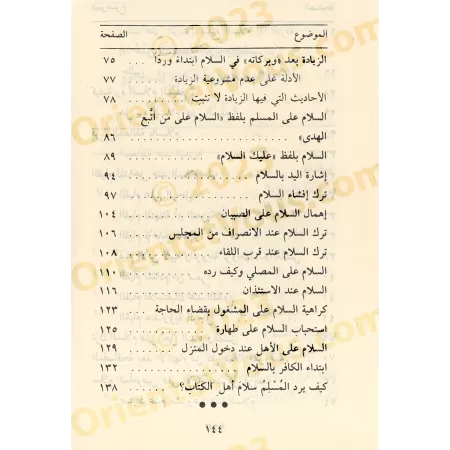 الموضوع الصفحة
الزيادة بعد «وبركاته» في السلام ابتداءً ورداً . . . ٧٥
الأدلة على عدم مشروعية الزيادة ٧٧
الأحاديث التي فيها الزيادة لا تثبت . . . . . . . . . ٧٨
السلام على المسلم بلفظ «السلام على من اتُّبع
الهدى» . . . . . . . . . . . . . . . . . . . . . ٨٦
السلام بلفظ «عليك السلام» . . . . . . . . . . . ٨٩
إشارة اليد بالسلام . . . . . . . . . . . . . . . . ٩٤
ترك إفشاء السلام . . . . . . . . . . . . . . . . ٩٧
إهمال السلام على الصبيان . . . . . . . . . . . ١٠٤
ترك السلام عند الانصراف من المجلس ١٠٦
ترك السلام عند قرب اللقاء . . . . . . . . . . ١٠٨
السلام على المصلي وكيف رده . . . . . . . . ١١٠
السلام عند الاستئذان . . . . . . . . . . . . . . ١١٦
كراهية السلام على المشغول بقضاء الحاجة ١٢٣
استحباب السلام على طهارة . . . . . . . . . . ١٢٥
السلام على الأهل عند دخول المنزل . . . . . ١٢٩
ابتداء الكافر بالسلام . . . . . . . . . . . . . . ١٣٢
كيف يرد المُسْلِمُ سلام أهل الكتاب؟ . . . . . ١٣٨
•••
١٤٤
OrientalVoice.com © 2023